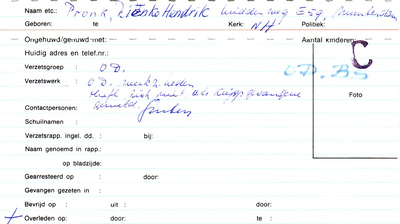 Naam etc.: Pronk, Riënke Hendrik Middenweg E59,
Geboren: te Kerk: NH Politiek:
Ongehuwd/gehuwd met: Aantal kinderen:
Huidig adres en telef.nr.: C
Verzetsgroep : O.D. O.D. BS
Verzetswerk : O.D. medewerker Foto
heeft zich niet als krijgsgevangene
Contactpersonen: gemeld.
Schuilnamen :
Verzetsrapp. ingel. dd. : bij:
Naam genoemd in rapp.:
op bladzijde:
Gearresteerd op : door:
Gevangen gezeten in :
Bevrijd op : uit : door:
+ Overleden op : door: te :